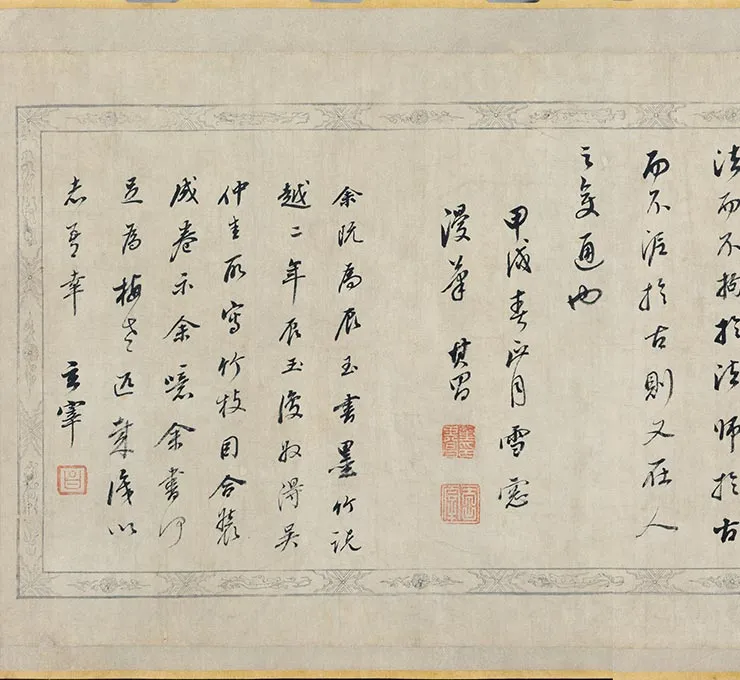 法而不拘於法師於古
而不泥於古則又在人
之變通也
甲戌春正月雪窓
漫筆 其昌
余既為辰玉書墨竹說
越二年辰玉復收得吳
仲圭所寫竹枝因合裝
成卷示余噫余書何
足為梅老匹
志吾幸 玄宰